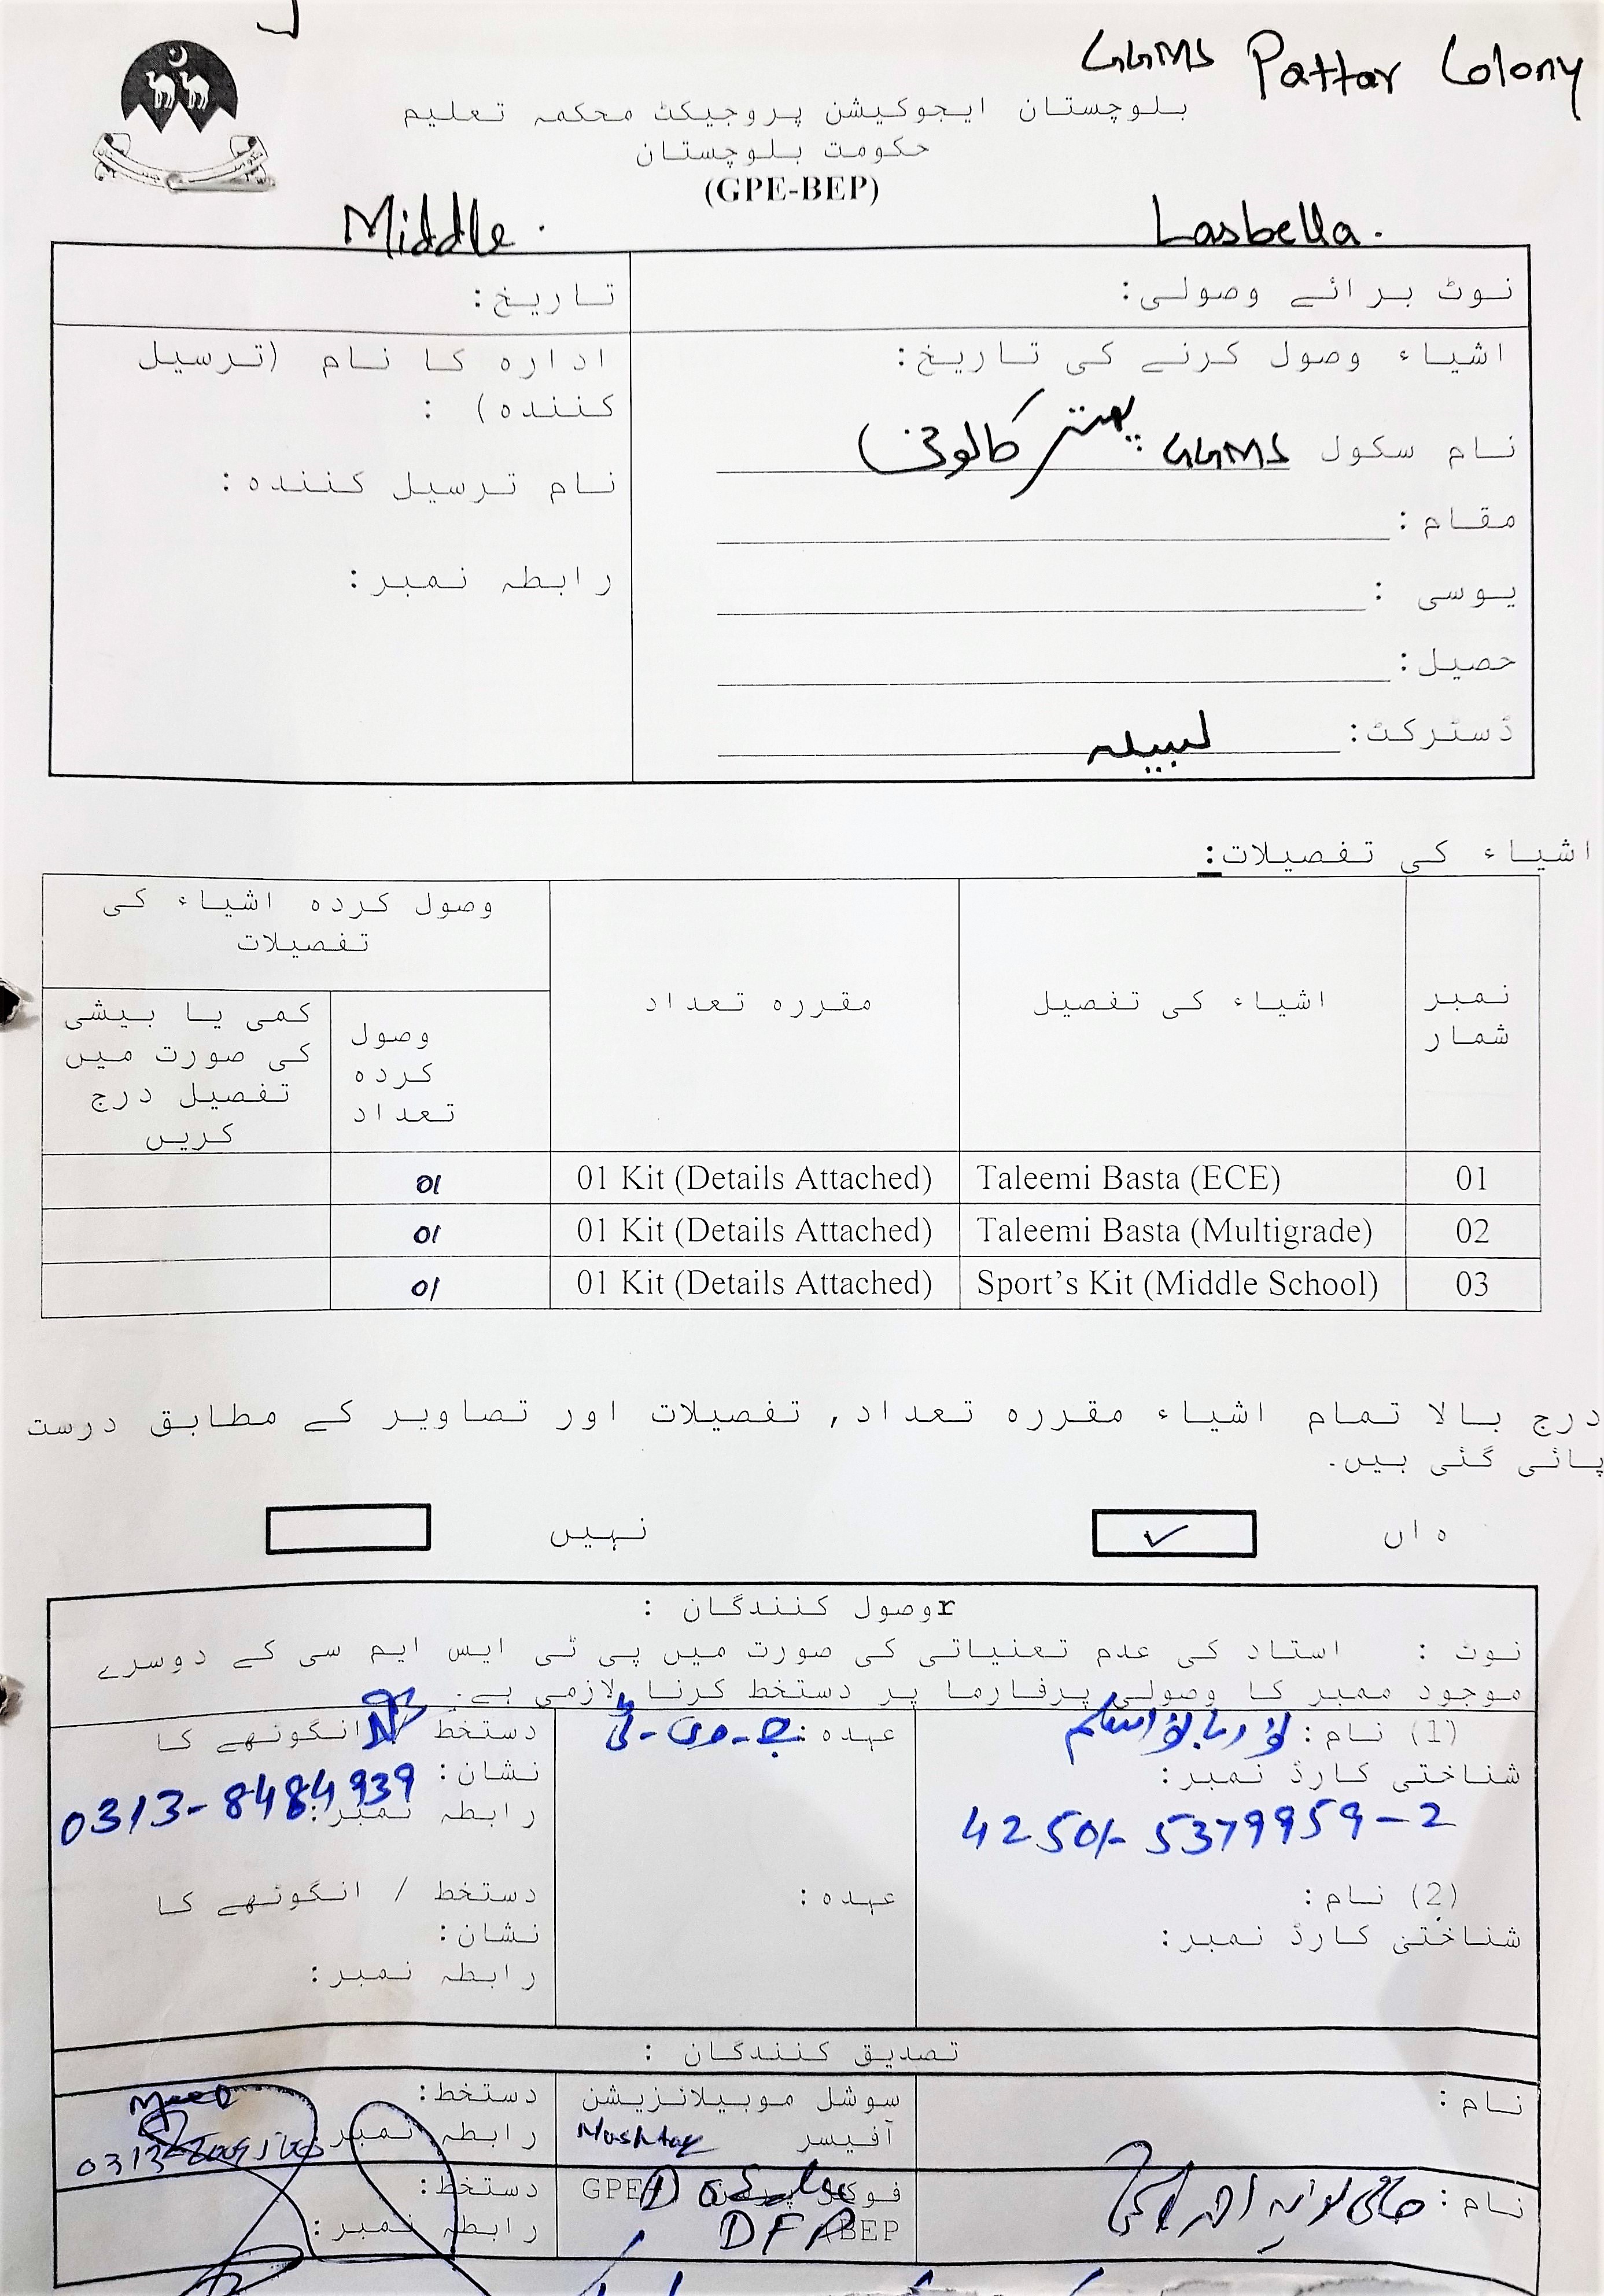 GGMS Pattar Colony
بلوچستان ایجوکیشن پروجیکٹ محکمہ تعلیم
حکومت بلوچستان
(GPE-BEP)
Middle. Lasbella.
نوٹ برائے وصولی: تاریخ:
اشیاء وصول کرنے کی تاریخ:
نام سکول GGMS پھتر کالونی
مقام:
یوسی :
حصیل:
ڈسٹرکٹ: لسبیلہ
ادارہ کا نام (ترسیل
کنندہ) :
نام ترسیل کنندہ:
رابطہ نمبر:
اشیاء کی تفصیلات:
نمبر شمار اشیاء کی تفصیل مقررہ تعداد وصول کردہ اشیاء کی تفصیلات
وصول کردہ تعداد کمی یا بیشی کی صورت میں تفصیل درج کریں
01 Taleemi Basta (ECE) 01 Kit (Details Attached) 01
02 Taleemi Basta (Multigrade) 01 Kit (Details Attached) 01
03 Sport's Kit (Middle School) 01 Kit (Details Attached) 01
درج بالا تمام اشیاء مقررہ تعداد, تفصیلات اور تصاویر کے مطابق درست
پائی گئی ہیں۔
ہاں ✓ نہیں
rوصول کنندگان :
نوٹ : استاد کی عدم تعنیاتی کی صورت میں پی ٹی ایس ایم سی کے دوسرے
موجود ممبر کا وصولی پرفارما پر دستخط کرنا لازمی ہے۔
(1) نام: عہدہ: جے-وی-ٹی دستخط انگوٹھے کا
شناختی کارڈ نمبر: نشان:
42501-5379959-2 رابطہ نمبر: 0313-8484939
(2) نام: عہدہ: دستخط / انگوٹھے کا
شناختی کارڈ نمبر: نشان:
رابطہ نمبر:
تصدیق کنندگان :
نام: سوشل موبیلائزیشن دستخط:
آفیسر Mushtaq رابطہ نمبر
نام: فوکل GPE دستخط:
DFP BEP رابطہ نمبر: